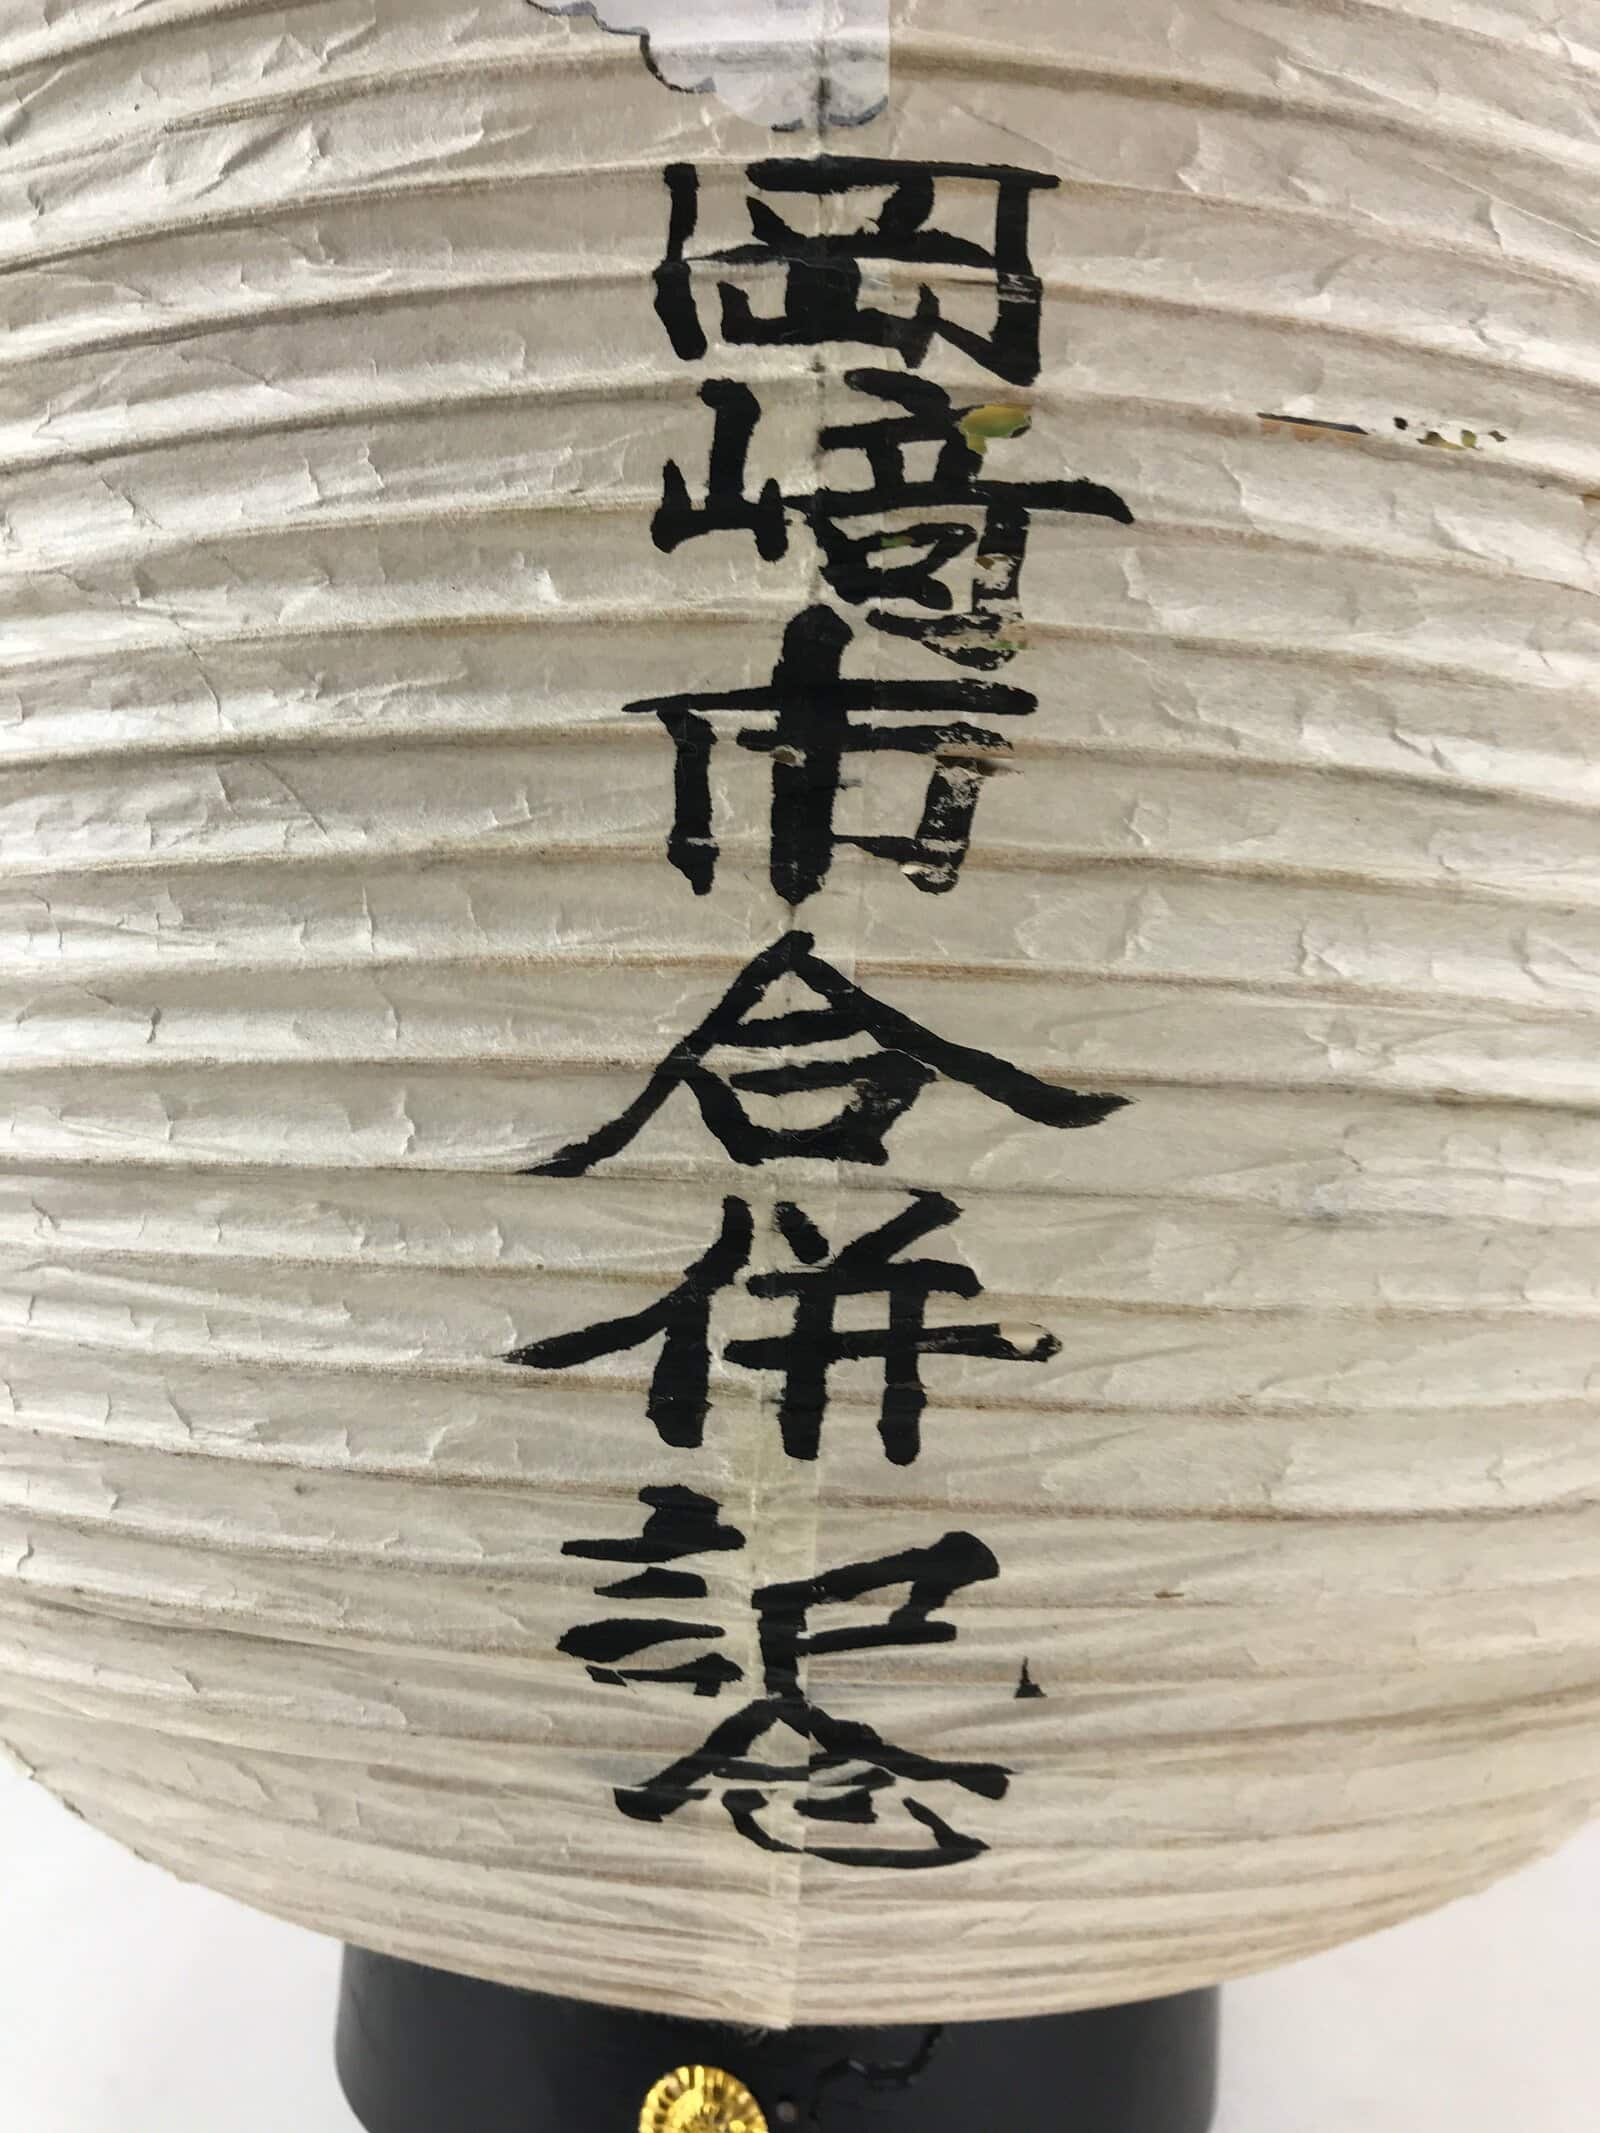 岡﨑市合併記念